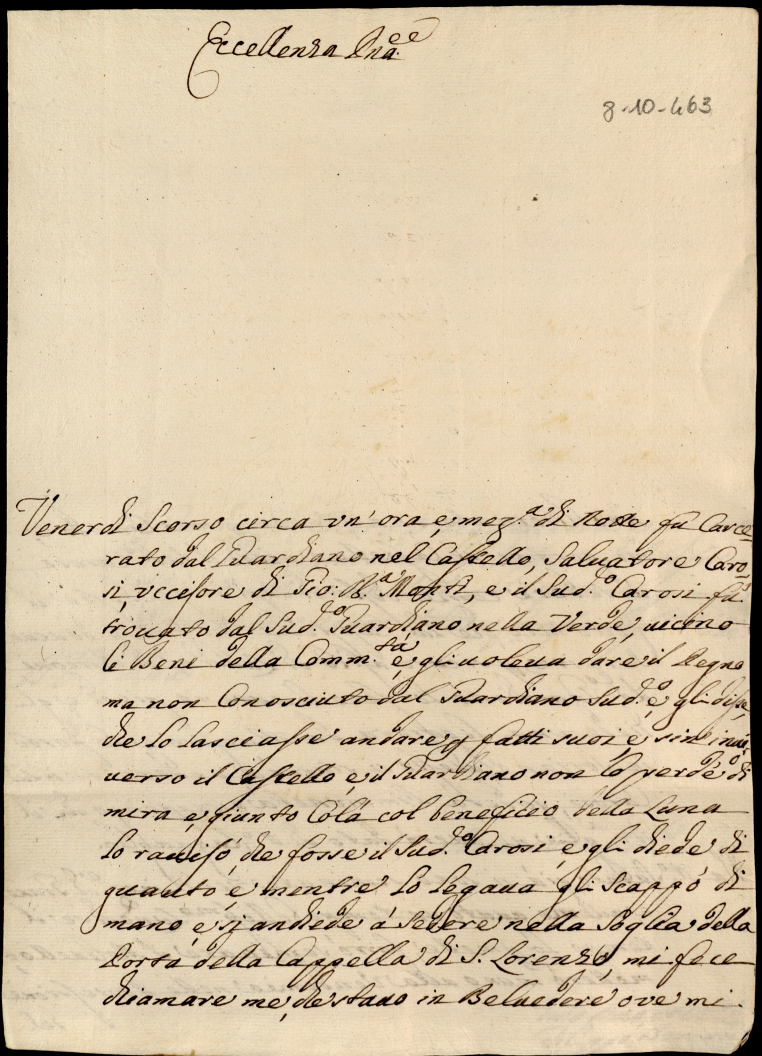 Eccellenza Pna.ᵉᵉ
8-10-463
Venerdi Scorso circa vn' ora, e mez.ª di Notte fù Carce
rato dal Guardiano nel Castello, Saluatore Caro
si, vccisore di Gio: B.ª Monti, e il Sud.º Carosi fù
trouato dal Sud.º Guardiano nella Verde, uicino
li Beni della Comm.tà e gli uoleua dare il Pegno
ma non Conosciuto dal Guardiano Sud.º e gli disse,
che lo lasciasse andare p fatti suoi e s'in inuiò
uerso il Castello, e il Guardiano non lo perdè di
mira, e giunto Colà col beneficio della Luna
lo rauisò, che fosse il Sud.º Carosi, e gli diede di
guanto, e mentre lo legaua gli Scappò di
mano, e si andiede à Sedere nella Soglia della
Porta della Cappella di S. Lorenzo, mi fece
chiamare me, che stauo in Beluedere ove mi